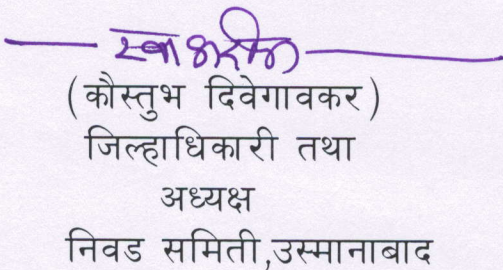 स्वाक्षरीत
(कौस्तुभ दिवेगावकर)
जिल्हाधिकारी तथा
अध्यक्ष
निवड समिती,उस्मानाबाद